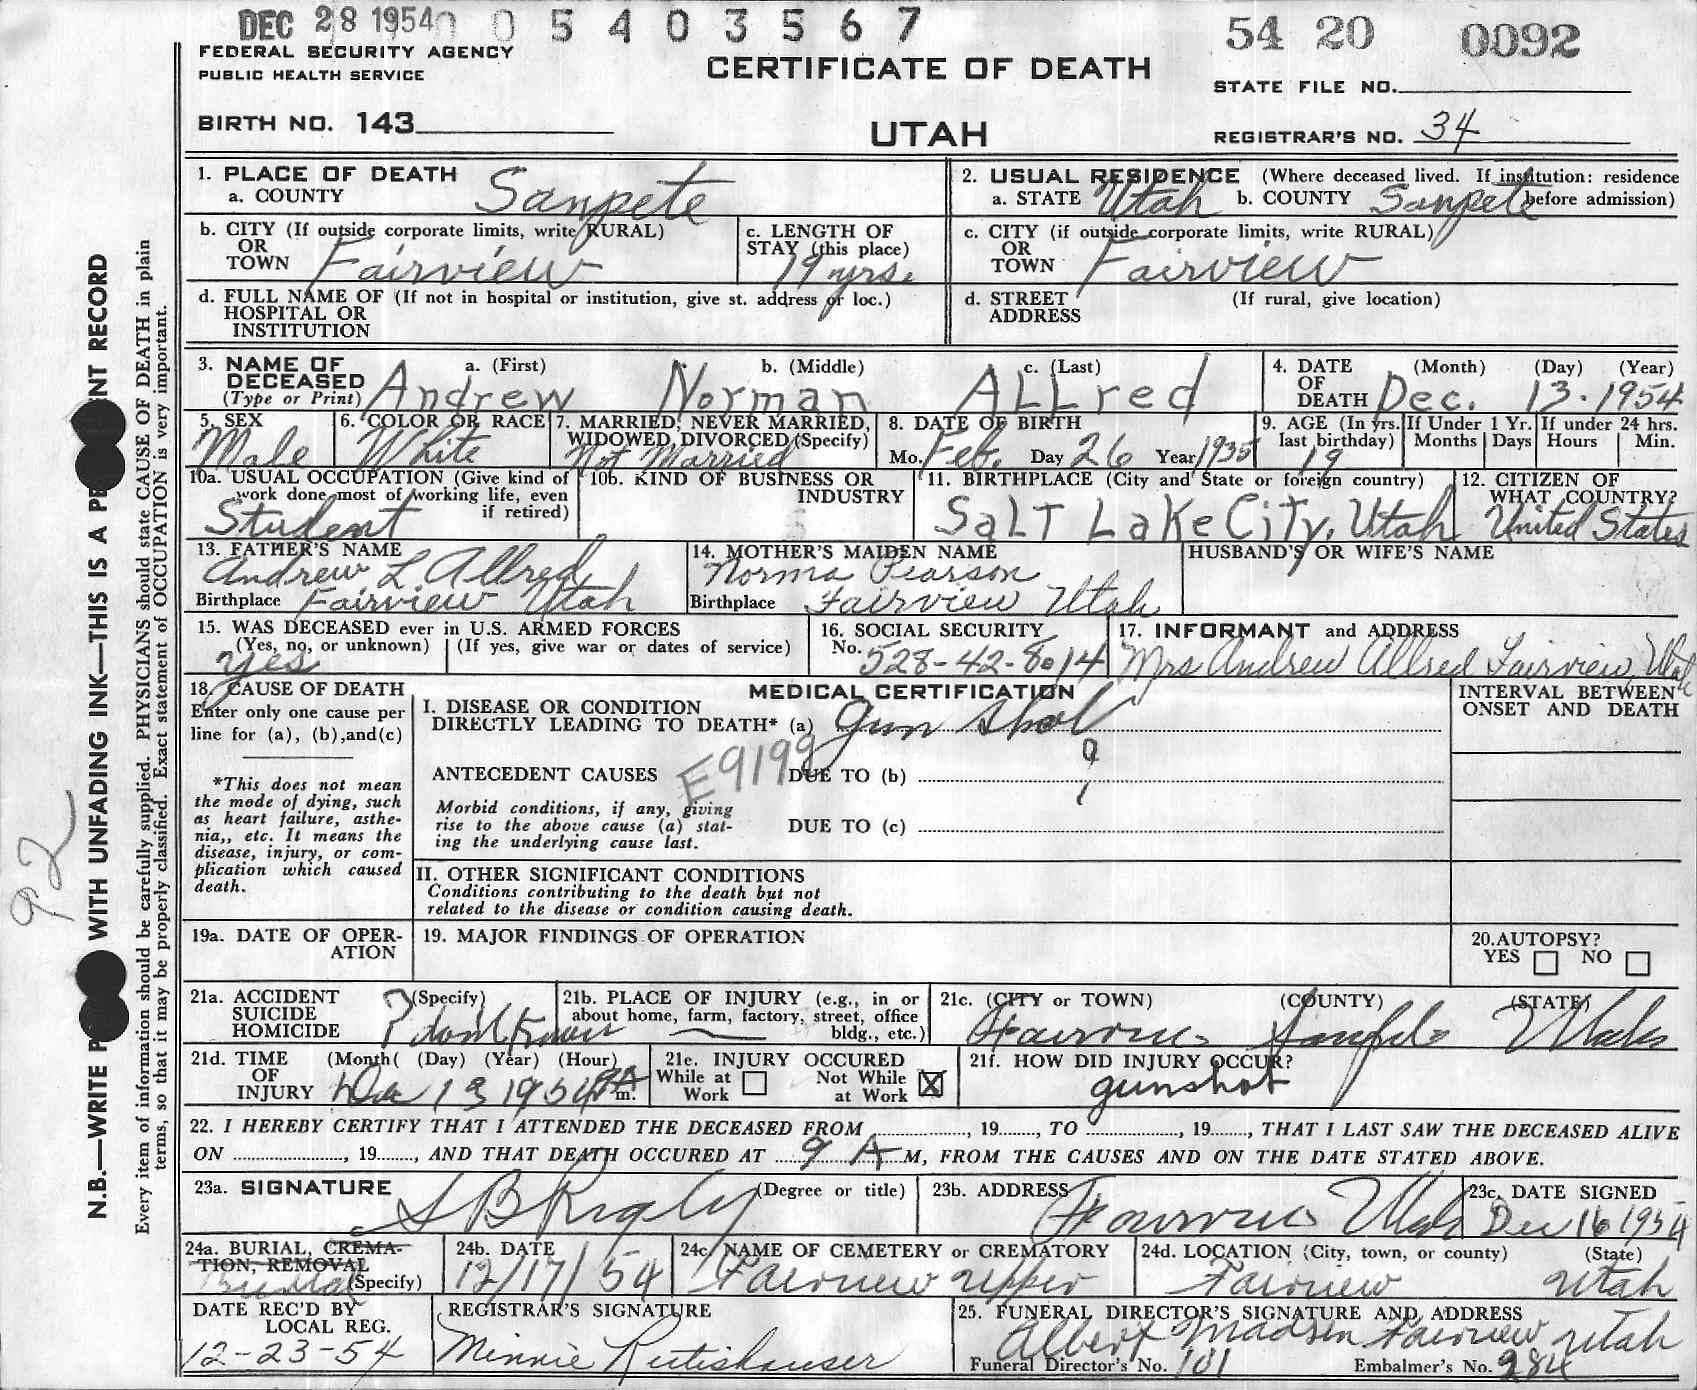 DEC 28 1954 0 0 5 4 0 3 5 6 7 54 20 0092
FEDERAL SECURITY AGENCY
PUBLIC HEALTH SERVICE
CERTIFICATE OF DEATH
STATE FILE NO.
BIRTH NO. 143
UTAH
REGISTRAR'S NO. 34
1. PLACE OF DEATH
a. COUNTY Sanpete
2. USUAL RESIDENCE (Where deceased lived. If institution: residence before admission)
a. STATE Utah b. COUNTY Sanpete
b. CITY (If outside corporate limits, write RURAL)
OR
TOWN Fairview
c. LENGTH OF
STAY (this place)
19 yrs.
c. CITY (if outside corporate limits, write RURAL)
OR
TOWN Fairview
d. FULL NAME OF (If not in hospital or institution, give st. address or loc.)
HOSPITAL OR
INSTITUTION
d. STREET (If rural, give location)
ADDRESS
3. NAME OF DECEASED (Type or Print)
a. (First) b. (Middle) c. (Last)
Andrew Norman ALLred
4. DATE OF DEATH (Month) (Day) (Year)
Dec. 13. 1954
5. SEX
Male
6. COLOR OR RACE
White
7. MARRIED, NEVER MARRIED,
WIDOWED, DIVORCED (Specify)
Not Married
8. DATE OF BIRTH
Mo. Feb. Day 26 Year 1935
9. AGE (In yrs. last birthday) 19
If Under 1 Yr. Months Days
If under 24 hrs. Hours Min.
10a. USUAL OCCUPATION (Give kind of
work done most of working life, even
if retired)
Student
10b. KIND OF BUSINESS OR
INDUSTRY
11. BIRTHPLACE (City and State or foreign country)
SaLT Lake City, Utah
12. CITIZEN OF
WHAT COUNTRY?
United States
13. FATHER'S NAME
Andrew L. Allred
Birthplace Fairview Utah
14. MOTHER'S MAIDEN NAME
Norma Pearson
Birthplace Fairview Utah
HUSBAND'S OR WIFE'S NAME
15. WAS DECEASED ever in U.S. ARMED FORCES
(Yes, no, or unknown) (If yes, give war or dates of service)
yes
16. SOCIAL SECURITY
No. 528-42-8014
17. INFORMANT and ADDRESS
Mrs Andrew Allred Fairview, Utah
18. CAUSE OF DEATH
Enter only one cause per
line for (a), (b),and(c)
*This does not mean
the mode of dying, such
as heart failure, asthe-
nia,, etc. It means the
disease, injury, or com-
plication which caused
death.
MEDICAL CERTIFICATION
I. DISEASE OR CONDITION
DIRECTLY LEADING TO DEATH* (a) Gun Shot
INTERVAL BETWEEN
ONSET AND DEATH
E9199
ANTECEDENT CAUSES DUE TO (b)
?
Morbid conditions, if any, giving
rise to the above cause (a) stat-
ing the underlying cause last.
DUE TO (c)
II. OTHER SIGNIFICANT CONDITIONS
Conditions contributing to the death but not
related to the disease or condition causing death.
19a. DATE OF OPER-
ATION
19. MAJOR FINDINGS OF OPERATION
20.AUTOPSY?
YES NO
21a. ACCIDENT
SUICIDE
HOMICIDE
(Specify)
? dont know
21b. PLACE OF INJURY (e.g., in or
about home, farm, factory, street, office
bldg., etc.)
21c. (CITY or TOWN) (COUNTY) (STATE)
Fairview Sanpete Utah
21d. TIME
OF
INJURY
(Month( (Day) (Year) (Hour)
Dec 13 1954 9A m.
21e. INJURY OCCURED
While at Work
Not While at Work X
21f. HOW DID INJURY OCCUR?
gunshot
22. I HEREBY CERTIFY THAT I ATTENDED THE DECEASED FROM ..............., 19......, TO ..............., 19......, THAT I LAST SAW THE DECEASED ALIVE
ON ................, 19......, AND THAT DEATH OCCURED AT 9 A M, FROM THE CAUSES AND ON THE DATE STATED ABOVE.
23a. SIGNATURE (Degree or title)
S B Rigby
23b. ADDRESS
Fairview Utah
23c. DATE SIGNED
Dec 16 1954
24a. BURIAL, CREMA-
TION, REMOVAL
(Specify)
Burial
24b. DATE
12/17/54
24c. NAME OF CEMETERY or CREMATORY
Fairview Upper
24d. LOCATION (City, town, or county) (State)
Fairview Utah
DATE REC'D BY
LOCAL REG.
12-23-54
REGISTRAR'S SIGNATURE
Minnie Rutishauser
25. FUNERAL DIRECTOR'S SIGNATURE AND ADDRESS
Albert Madsen Fairview Utah
Funeral Director's No. 101 Embalmer's No. 284
N.B.—WRITE WITH UNFADING INK—THIS IS A RECORD
Every item of information should be carefully supplied. PHYSICIANS should state CAUSE OF DEATH in plain
terms, so that it may be properly classified. Exact statement of OCCUPATION is very important.
92